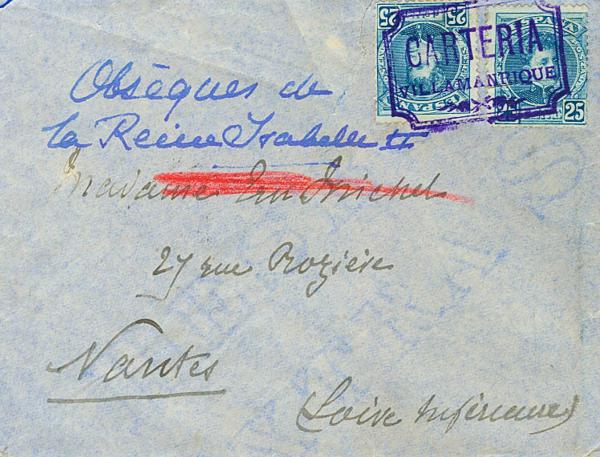 25 25
CARTERIA
VILLAMANRIQUE
Obsèques de
la Reine Isabelle II
Madame Em Michel
27 rue Rozière
Nantes
Loire Inférieure